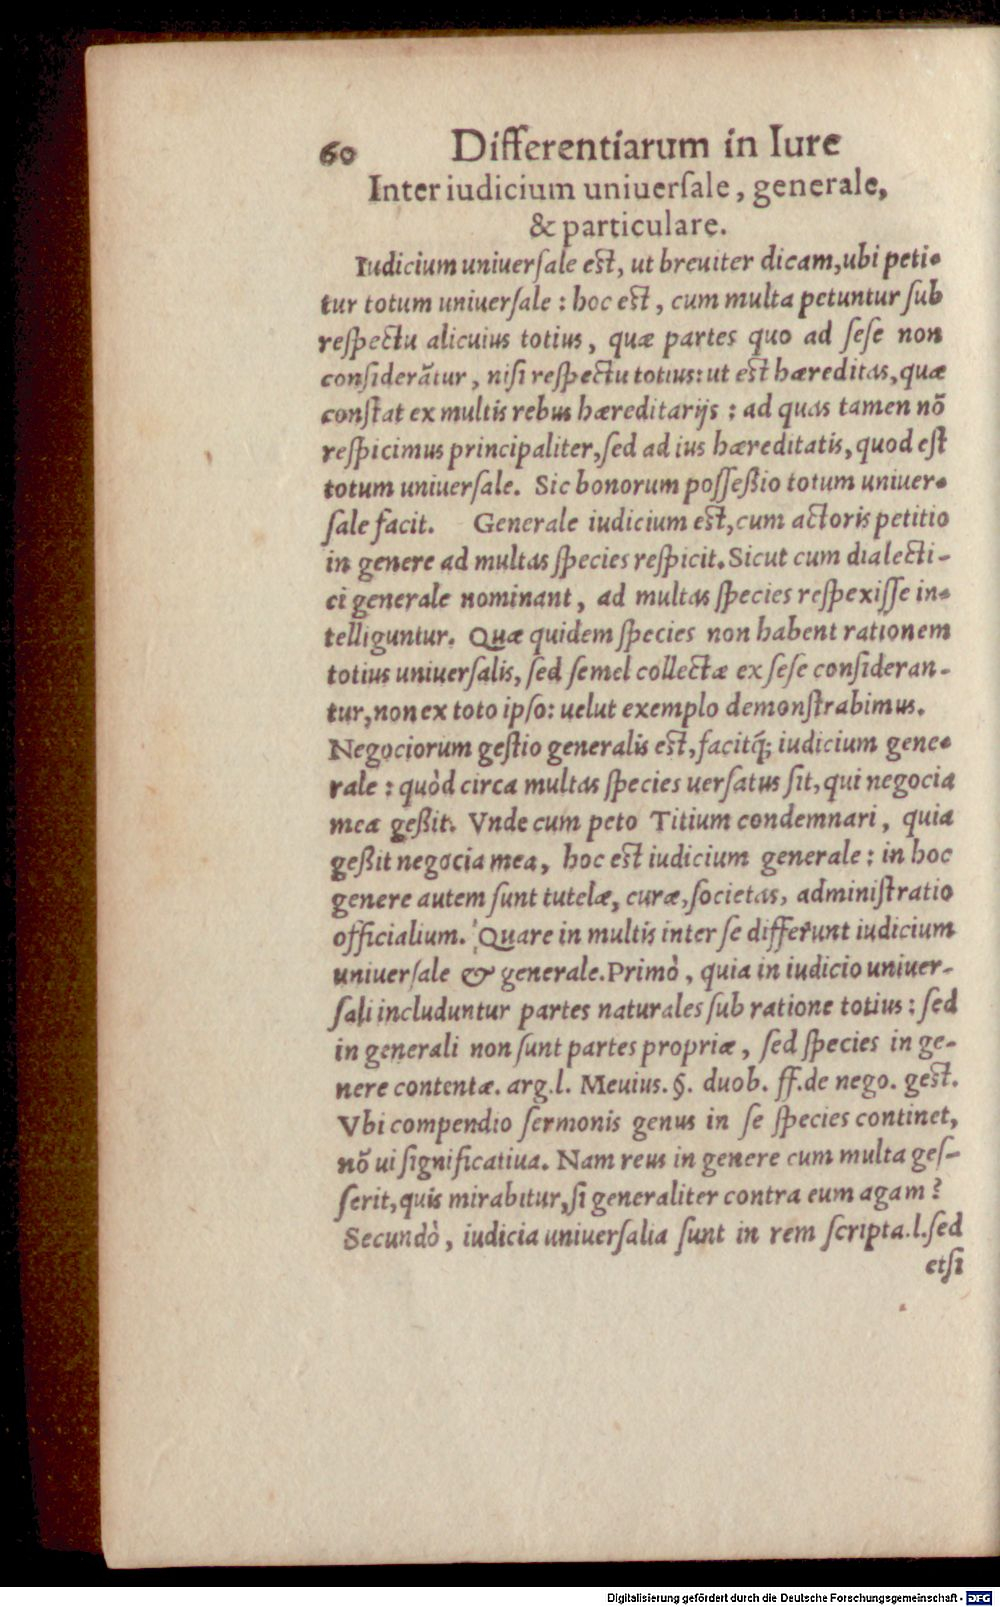 60 Differentiarum in Iure
Inter iudicium uniuersale, generale,
& particulare.
Iudicium uniuersale est, ut breuiter dicam, ubi peti-
tur totum uniuersale: hoc est, cum multa petuntur sub
respectu alicuius totius, quæ partes quo ad sese non
considerãtur, nisi respectu totius: ut est hæreditas, quæ
constat ex multis rebus hæreditarijs: ad quas tamen nõ
respicimus principaliter, sed ad ius hæreditatis, quod est
totum uniuersale. Sic bonorum posseßio totum uniuer-
sale facit. Generale iudicium est, cum actoris petitio
in genere ad multas species respicit. Sicut cum dialecti-
ci generale nominant, ad multas species respexisse in-
telliguntur. Quæ quidem species non habent rationem
totius uniuersalis, sed semel collectæ ex sese consideran-
tur, non ex toto ipso: uelut exemplo demonstrabimus.
Negociorum gestio generalis est, facitq́; iudicium gene-
rale: quòd circa multas species uersatus sit, qui negocia
mea geßit. Vnde cum peto Titium condemnari, quia
geßit negocia mea, hoc est iudicium generale: in hoc
genere autem sunt tutelæ, curæ, societas, administratio
officialium. Quare in multis inter se differunt iudicium
uniuersale & generale. Primò, quia in iudicio uniuer-
sali includuntur partes naturales sub ratione totius: sed
in generali non sunt partes propriæ, sed species in ge-
nere contentæ. arg. l. Meuius. §. duob. ff. de nego. gest.
Vbi compendio sermonis genus in se species continet,
nõ ui significatiua. Nam reus in genere cum multa ges-
serit, quis mirabitur, si generaliter contra eum agam?
Secundò, iudicia uniuersalia sunt in rem scripta. l. sed
etsi
Digitalisierung gefördert durch die Deutsche Forschungsgemeinschaft - DFG